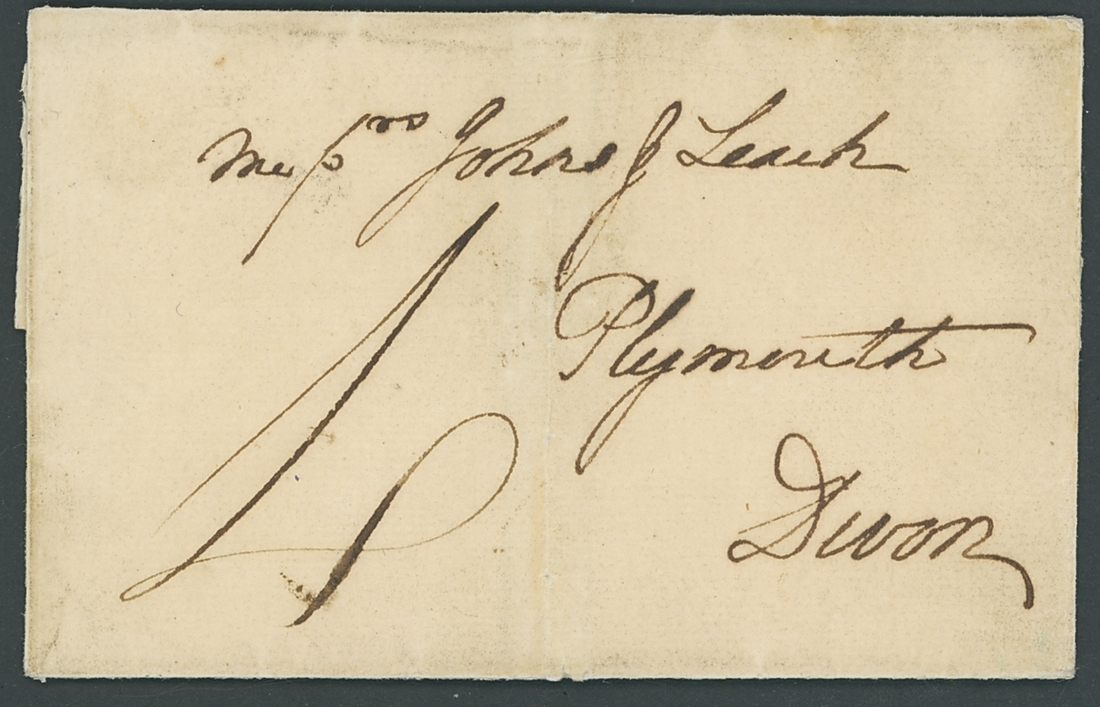 Messrs Johns & Leach
4
Plymouth
Devon